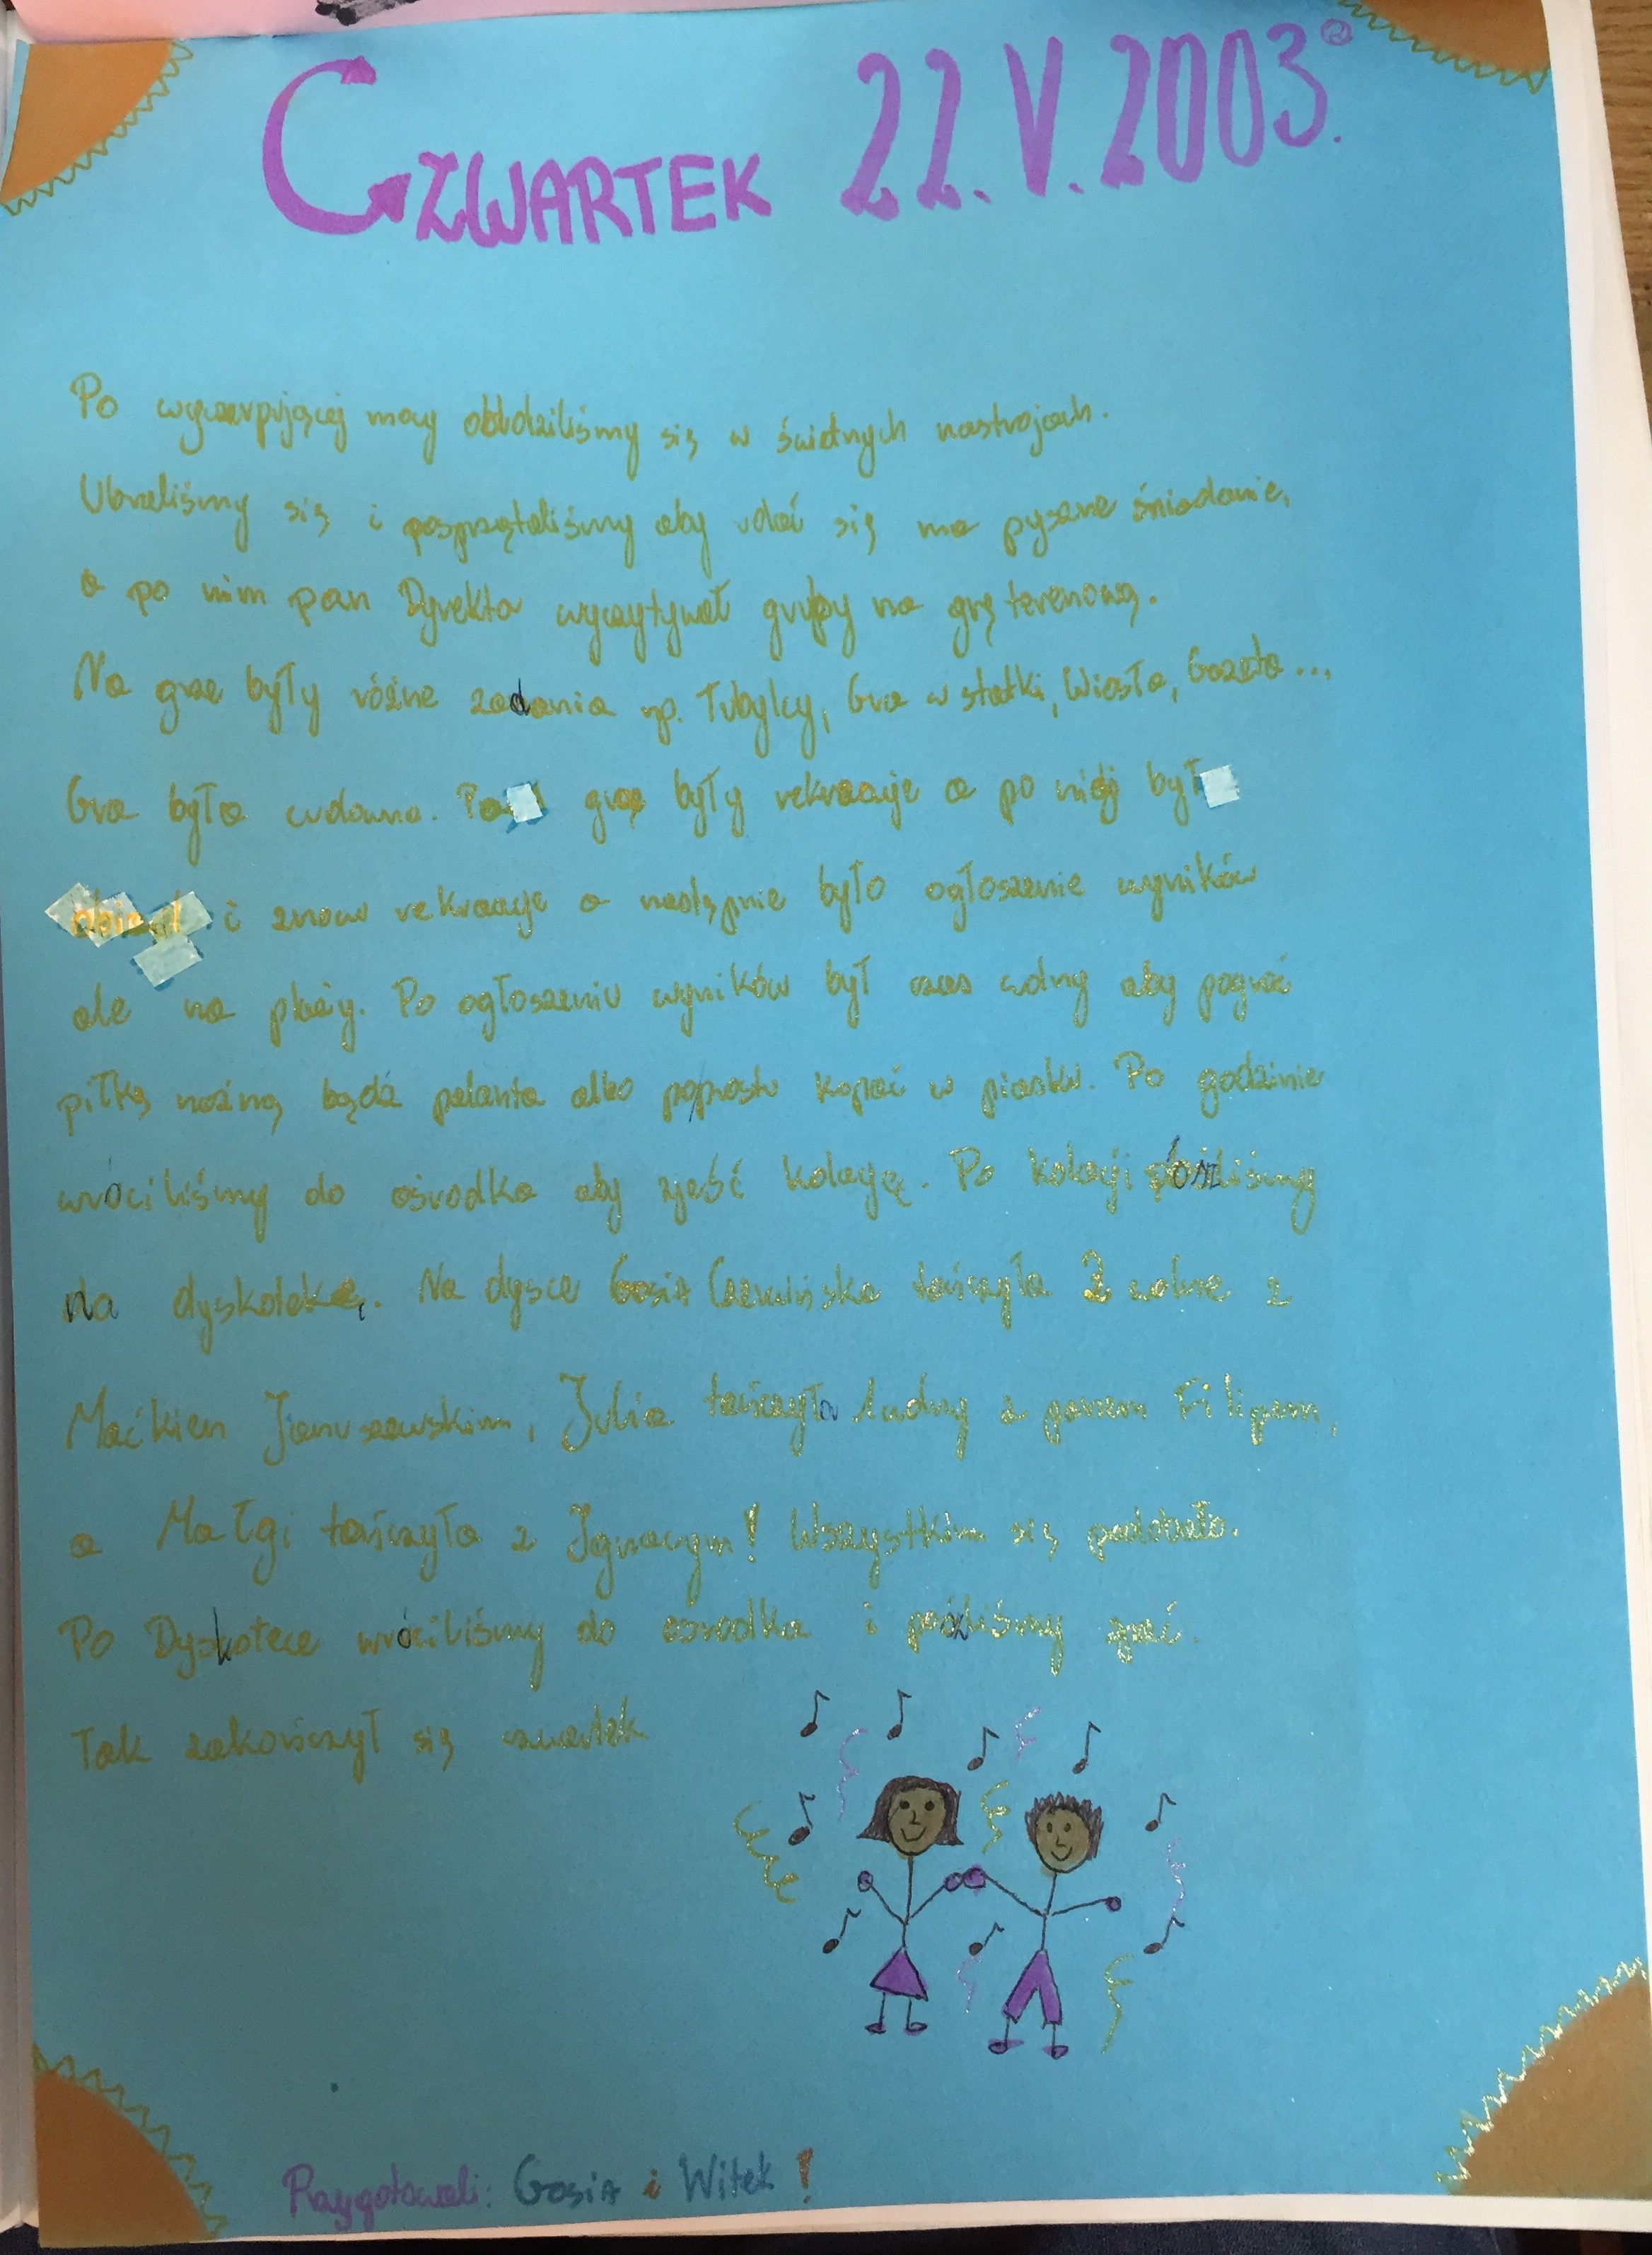 CZWARTEK 22.V.2003.
Po wyczerpującej nocy obudziliśmy się w świetnych nastrojach.
Ubraliśmy się i posprzątaliśmy aby udać się na pyszne śniadanie,
a po nim pan Dyrekto wyczytywał grupy na grę terenową.
Na grze były różne zadania np. Tubylcy, Gra w statki, Wiosła, Gazeta...
Gra była cudowna. Po grze były rekreacje a po niej był
obiad i znów rekreacje a następnie było ogłoszenie wyników
ale na plaży. Po ogłoszeniu wyników był czas wolny aby pograć
piłkę nożną bądź palanta albo poprostu kopać w piasku. Po godzinie
wróciliśmy do ośrodka aby zjeść kolację. Po kolacji poszliśmy
na dyskotekę. Na dysce Gosia Czerwińska tańczyła 2 wolne z
Maćkiem Januszewskim, Julia tańczyła 1 wolny z panem Filipem,
a Małgi tańczyła z Ignacym! Wszystkim się podobało.
Po Dyskotece wróciliśmy do ośrodka i poszliśmy spać.
Tak zakończył się czwartek
Przygotowali: Gosia i Witek!